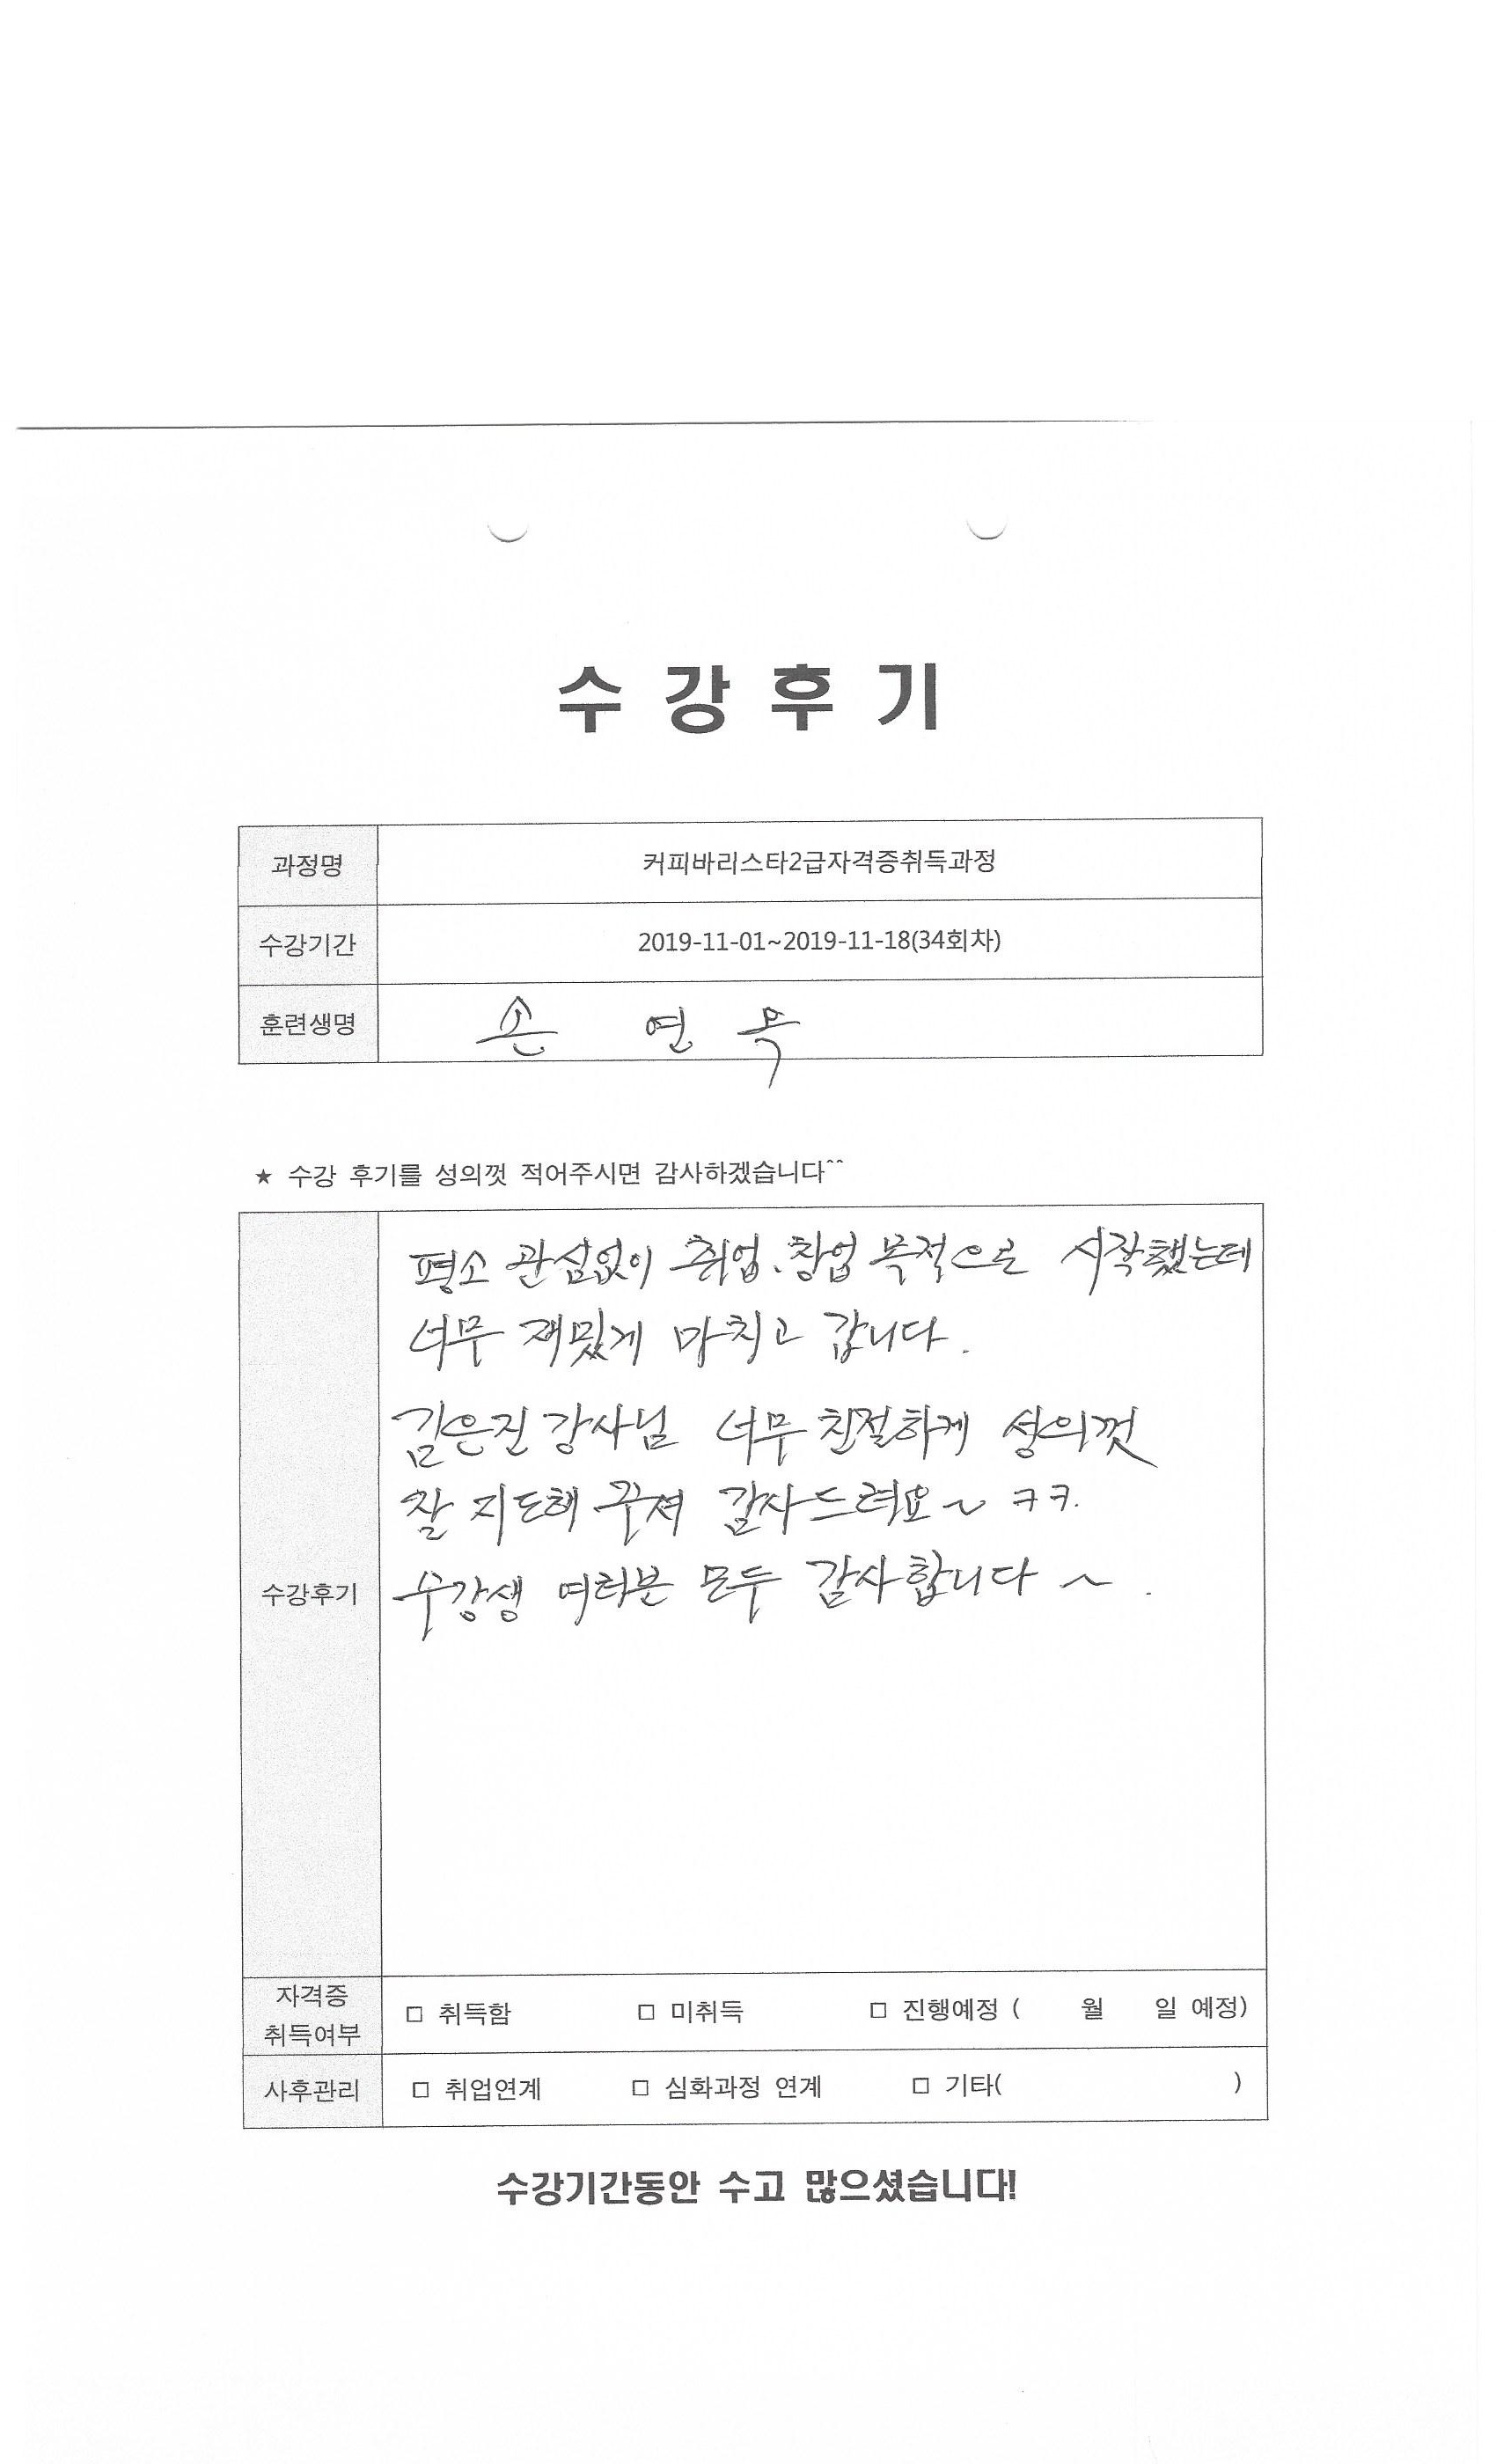 수 강 후 기
과정명 커피바리스타2급자격증취득과정
수강기간 2019-11-01~2019-11-18(34회차)
훈련생명 손 연 옥
★ 수강 후기를 성의껏 적어주시면 감사하겠습니다^^
평소 관심없이 취업.창업 목적으로 시작했는데
너무 재밌게 마치고 갑니다.
김은진 강사님 너무 친절하게 성의껏
잘 지도해 주셔 감사드려요~ ㅋㅋ.
수강후기
수강생 여러분 모두 감사합니다~.
자격증 취득여부 □ 취득함 □ 미취득 □ 진행예정 ( 월 일 예정)
사후관리 □ 취업연계 □ 심화과정 연계 □ 기타( )
수강기간동안 수고 많으셨습니다!